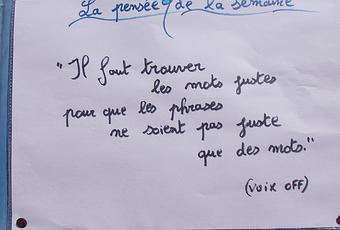 La pensée de la semaine
"Il faut trouver
les mots justes
pour que les phrases
ne soient pas juste
que des mots."
(voix OFF)